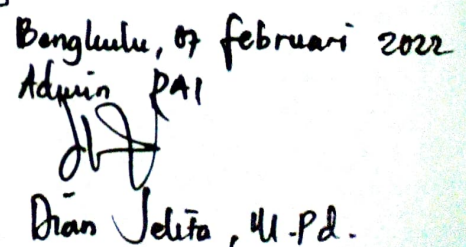 Bengkulu, 07 februari 2022
Admin PAI
Dian Jelita, M.Pd.